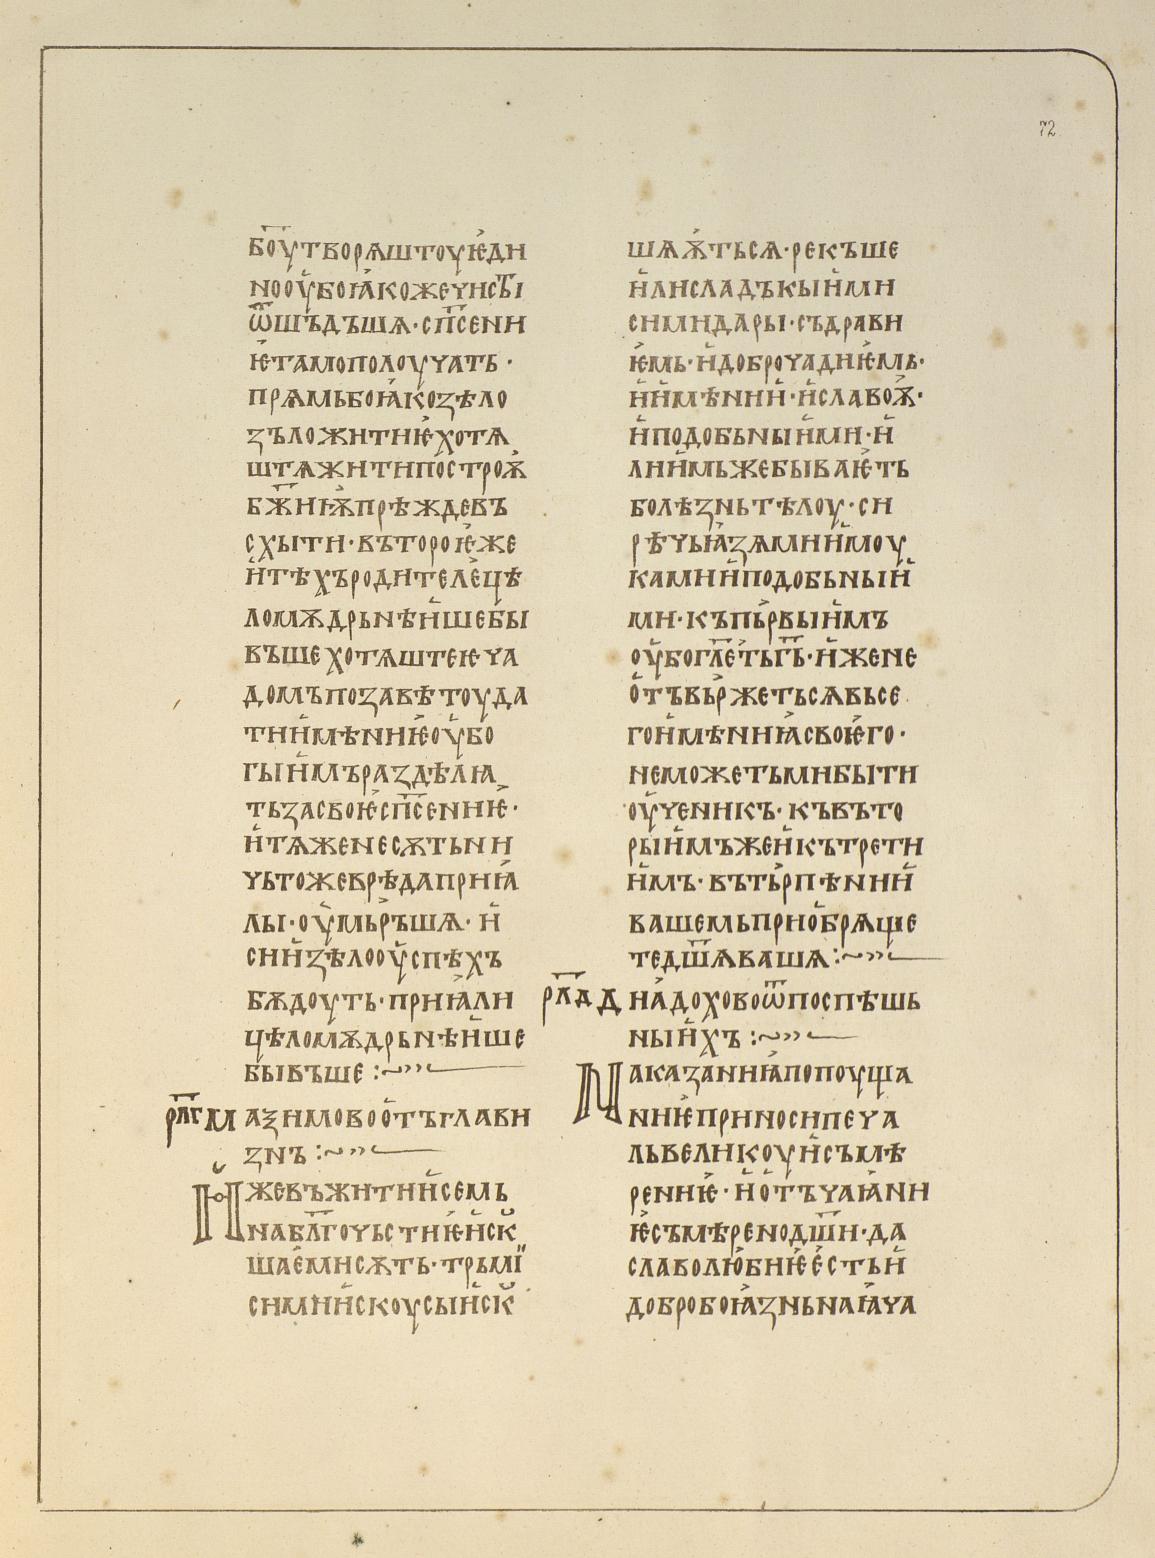 72
боу҃творѧштоуѥ҅ди
нооу҅боꙗ҅кожеꙋнст҃ꙑ
ѿшъдъшѧ·сп҃сени
ѥтамополоуꙋать·
прѧмьбоꙗ҅козѣло
зъложитиѥ҅хотѧ
штѧжитипостроѫ҅
бж҃иѭпрѣждевъ
схыти·въторо҅ѥже
и҅тѣхъродителе҅цѣ
ломѫдрьнѣи҅шебы
въшехотѧштеѥꙋа
домъпозавѣтоуда
тии҅мѣниѥ҅оу҅бо
гыи҅мъраздѣлꙗ
тьзасвоѥ҅сп҃сениѥ҅·
и҅тѧженесѫтьни
ꙋьтожеврѣдаприꙗ҅
лы·оу҅мьръшѧ·и҅
сии҅зѣлооу҅спѣхъ
бѫдоуть·приꙗ҅ли
цѣломѫдрьнѣи҅ше
бывъше:~»
рл҃г маѯимовоо҅тъглави
знъ:~»
И҅жевъжитии҅семь
набл҃гоꙋьстиѥ҅и҅ск
шае҅мисѫть·трьмї
сими҅и҅скоусыи҅ск
шѧѭ҅тьсѧ·рекъше
и҅лисладъкыи҅ми
симидары·съдрави
ѥ҅мь·и҅доброꙋадиѥ҅мь·
и҅и҅мѣнии҅·и҅славоѭ҅·
и҅подобьныи҅ми·и҅
лии҅мьжебываѥ҅ть
болѣзньтѣлоу·си
рѣꙋьꙗ҅зѧмии҅моу
камии҅подобьныи҅
ми·къпьрвыи҅мъ
оу҅богл҃е҅тьг҃ь·и҅жене
о҅тъвьржетьсѧвьсе
гои҅мѣниꙗ҅своѥ҅го·
неможетьмибыти
оу҅ꙋеникъ·къвъто
рыи҅мъжеи҅кътрети
и҅мъ·вътьрпѣнии҅
вашемьприо҅брѧще
тедш҃ѧвашѧ:~»
рл҃д дна҅доховоѿпоспѣшь
ныи҅хъ:~»
Наказаниꙗ҅попоуща
ниѥ҅приносипеꙋа
львеликоуи҅съмѣ
рениѥ҅·и҅о҅тъꙋаꙗ҅ни
ѥ҅съмѣренодш҃и·да
славолю҅биѥ҅е҅стьи҅
добробоꙗ҅зньнаꙗ҅ꙋа